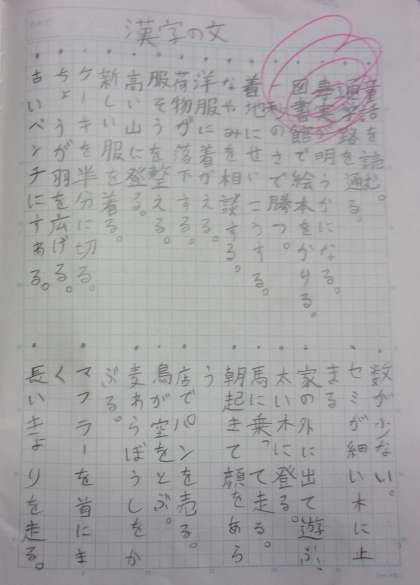 漢字の文
童話を読む。
通学路を通る。
真実が明らかになる。
図書館で絵本をかりる。
さで勝つ。
着地にせいこうする。
なやみを相談する。
洋服に着がえる。
荷物が落下する。
服そうを整える。
高い山に登る。
新しい服を着る。
ケーキを半分に切る。
ちょうが羽を広げる。
古いベンチにすわる。
数が少ない。
セミが細い木に止
まる
家の外に出て遊ぶ。
太い木に登る。
馬に乗って走る。
朝起きて顔をあら
う
店でパンを売る。
鳥が空をとぶ。
麦わらぼうしをか
ぶる。
マフラーを首にま
く
長いきょりを走る。